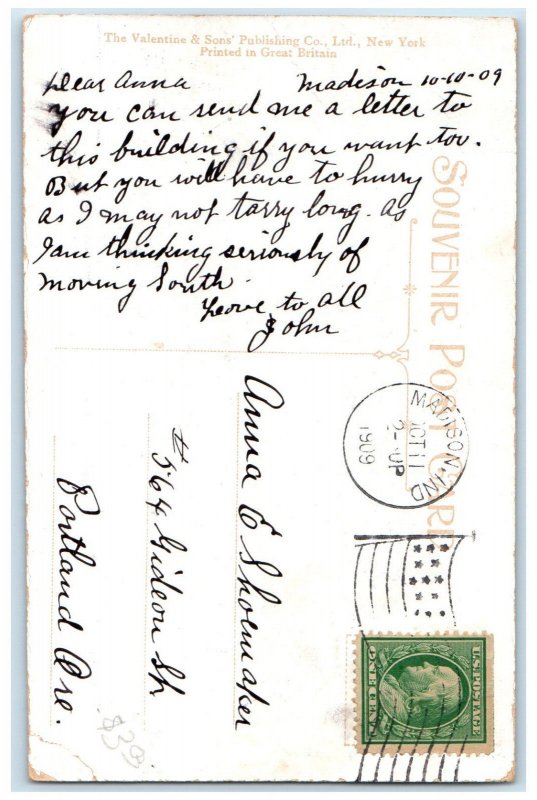 The Valentine & Sons' Publishing Co., Ltd., New York
Printed in Great Britain
Dear Anna Madison 10-10-09
you can send me a letter to
this building if you want too.
But you will have to hurry
as I may not tarry long. as
I am thinking seriously of
moving South.
Love to all
John
SOUVENIR POST CARD
MADISON, IND
OCT 11
2-UP
1909
Anna E Shoemaker
# 564 Gideon St.
Portland Ore.
U.S. POSTAGE
ONE CENT
$30